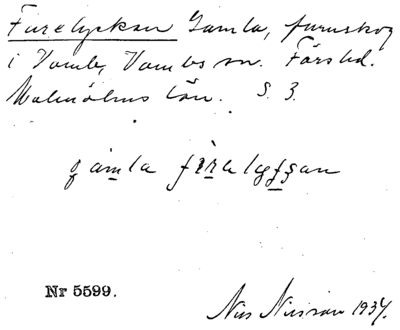 Furelyckan Gamla, furuskog
i Vomb, Vombs sn. Färs hd.
Malmöhus län. S. 3.
gamla
Nr 5599.
Nils Nilsson 1934.